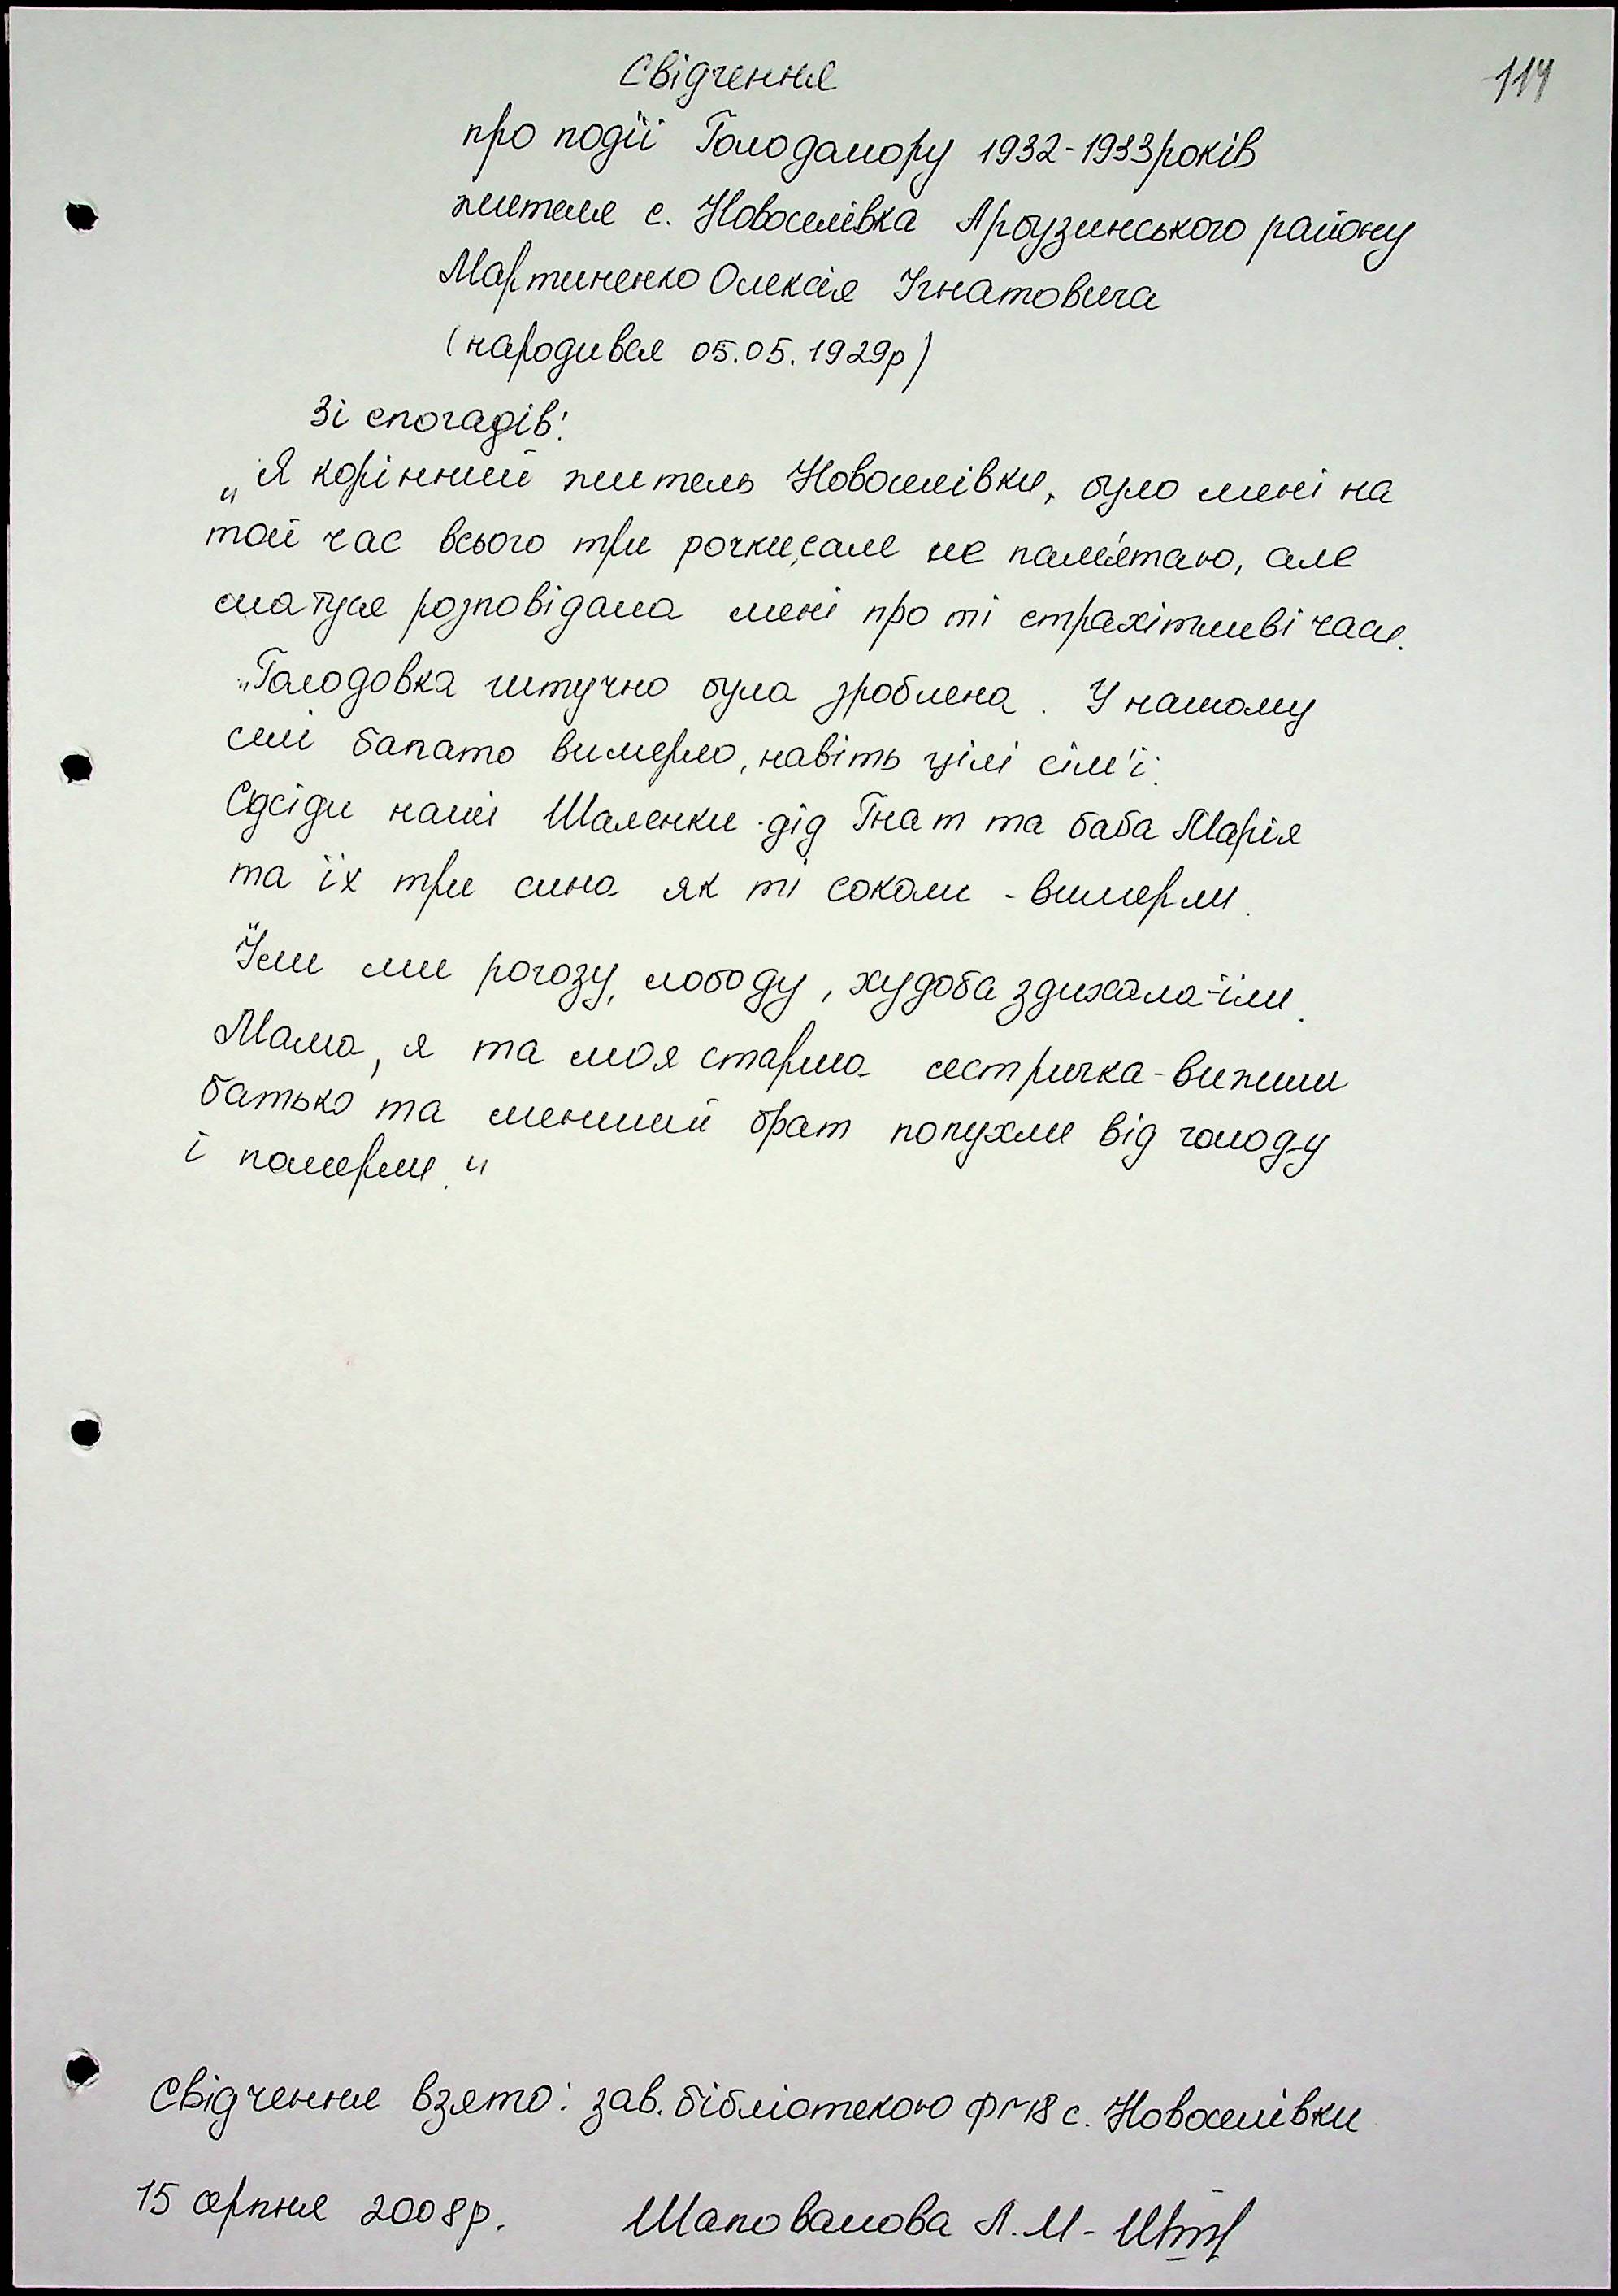 114
Свідчення
про події Голодомору 1932-1933 років
жителя с. Новоселівка Арбузинського району
Мартиненко Олексія Ігнатовича
(народився 05.05.1929р)
Зі спогадів:
„Я корінний житель Новоселівки, було мені на
той час всього три рочки, сам не пам'ятаю, але
матуся розповідала мені про ті страхітливі часи.
„Голодовка штучно була зроблена. У нашому
селі багато вимерло, навіть цілі сім'ї.
Сусіди наші Шаленки - дід Гнат та баба Марія
та їх три сина як ті соколи - вимерли.
Їли ми рогозу, лободу, худоба здихала - їли.
Мама, я та моя старша сестричка - вижили
батько та менший брат попухли від голоду
і померли."
Свідчення взято: зав. бібліотекою ф№18 с. Новоселівки
15 серпня 2008р.
Шаповалова Л.М -